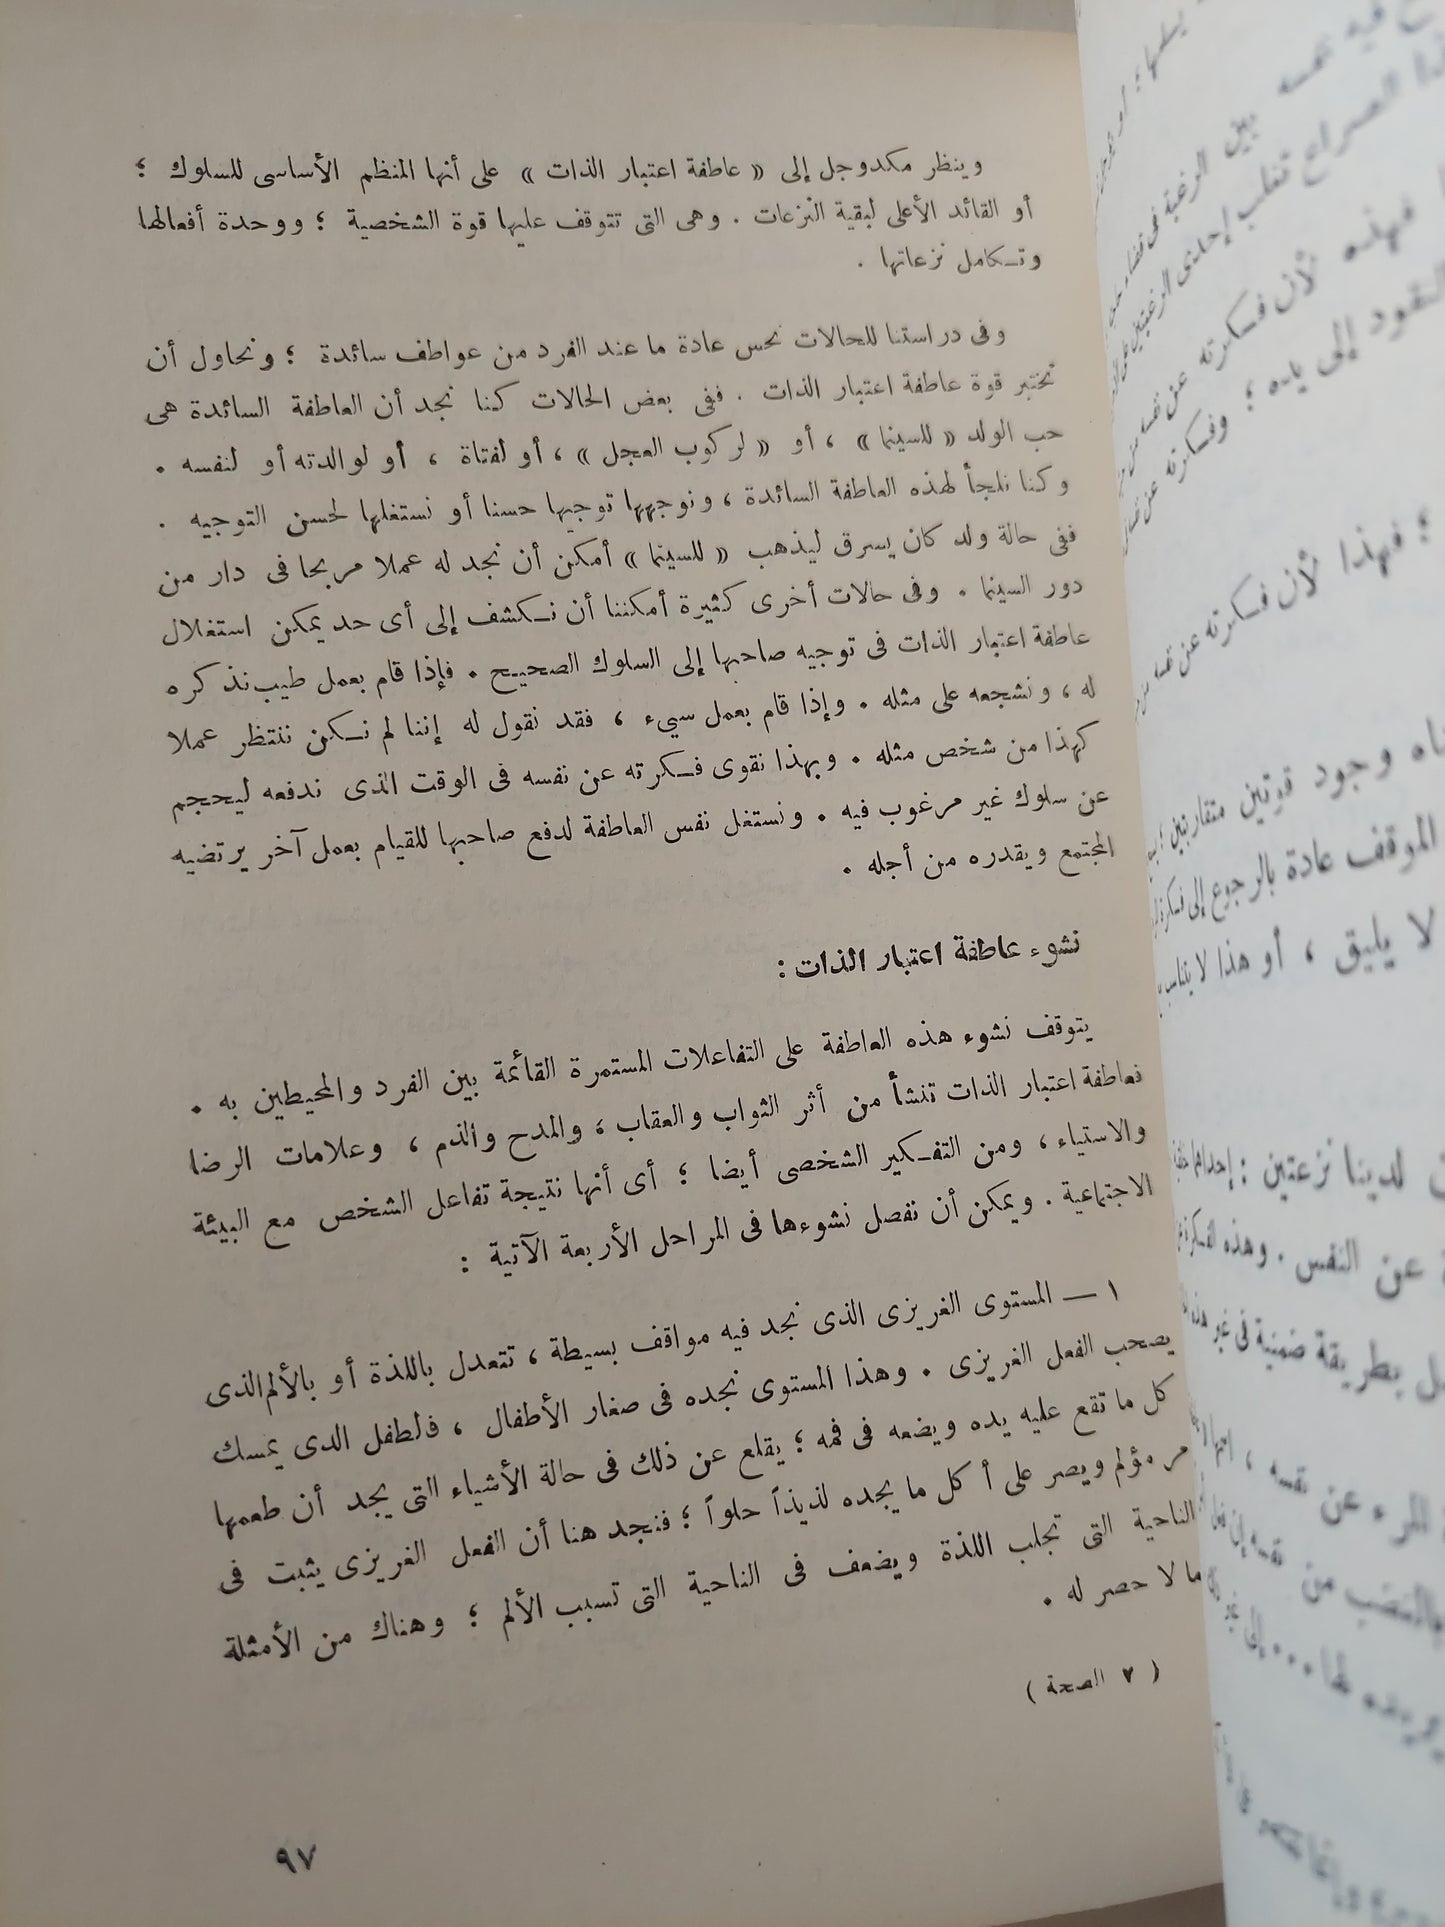 وينظر مكدوجل إلى « عاطفة اعتبار الذات » على أنها المنظم الأساسى للسلوك ؛
أو القائد الأعلى لبقية النزعات . وهى التى تتوقف عليها قوة الشخصية ؛ ووحدة أفعالها
وتكامل نزعاتها .
وفى دراستنا للحالات نحس عادة ما عند الفرد من عواطف سائدة ؛ ونحاول أن
نختبر قوة عاطفة اعتبار الذات . ففى بعض الحالات كنا نجد أن العاطفة السائدة هى
حب الولد « للسينما » ، أو « لركوب العجل » ، أو لفتاة ، أو لوالدته أو لنفسه .
وكنا نلجأ لهذه العاطفة السائدة ، ونوجهها توجيها حسنا أو نستغلها لحسن التوجيه .
ففى حالة ولد كان يسرق ليذهب « للسينما » أمكن أن نجد له عملا مربحا فى دار من
دور السينما . وفى حالات أخرى كثيرة أمكننا أن نكشف إلى أى حد يمكن استغلال
عاطفة اعتبار الذات فى توجيه صاحبها إلى السلوك الصحيح . فإذا قام بعمل طيب نذكره
له ، ونشجعه على مثله . وإذا قام بعمل سيىء ، فقد نقول له إننا لم نكن ننتظر عملا
كهذا من شخص مثله . وبهذا نقوى فكرته عن نفسه فى الوقت الذى ندفعه ليحجم
عن سلوك غير مرغوب فيه . ونستغل نفس العاطفة لدفع صاحبها للقيام بعمل آخر يرتضيه
المجتمع ويقدره من أجله .
نشوء عاطفة اعتبار الذات :
يتوقف نشوء هذه العاطفة على التفاعلات المستمرة القائمة بين الفرد والمحيطين به .
فعاطفة اعتبار الذات تنشأ من أثر الثواب والعقاب ، والمدح والذم ، وعلامات الرضا
والاستياء ، ومن التفكير الشخصى أيضا ؛ أى أنها نتيجة تفاعل الشخص مع البيئة
الاجتماعية . ويمكن أن نفصل نشوءها فى المراحل الأربعة الآتية :
١ — المستوى الغريزى الذى نجد فيه مواقف بسيطة ، تتعدل باللذة أو بالألم الذى
يصحب الفعل الغريزى . وهذا المستوى نجده فى صغار الأطفال ، فالطفل الدى يمسك
كل ما تقع عليه يده ويضعه فى فمه ؛ يقلع عن ذلك فى حالة الأشياء التى يجد أن طعمها
مر مؤلم ويصر على أكل ما يجده لذيذاً حلواً ؛ فنجد هنا أن الفعل الغريزى يثبت فى
الناحية التى تجلب اللذة ويضعف فى الناحية التى تسبب الألم ؛ وهناك من الأمثلة
ما لا حصر له .
( ٧ الصحة )
٩٧
فيه نفسه بين الرغبة فى
الصراع تغلب إحدى الرغبتين
فهذه لأن فكرته عن نفسه
النقود إلى يده ؛ وفكرته عن
؛ فهذا لأن فكرته عن نفسه
وجود قوتين متقاربتين ؛
الموقف عادة بالرجوع إلى فكرة
لا يليق ، أو هذا لا يناسب
لدينا نزعتين : إحداهما
عن النفس . وهذه الفكرة
بطريقة ضمنية فى غير هذه
المرء عن نفسه ،
والغضب من نفسه إن فعل